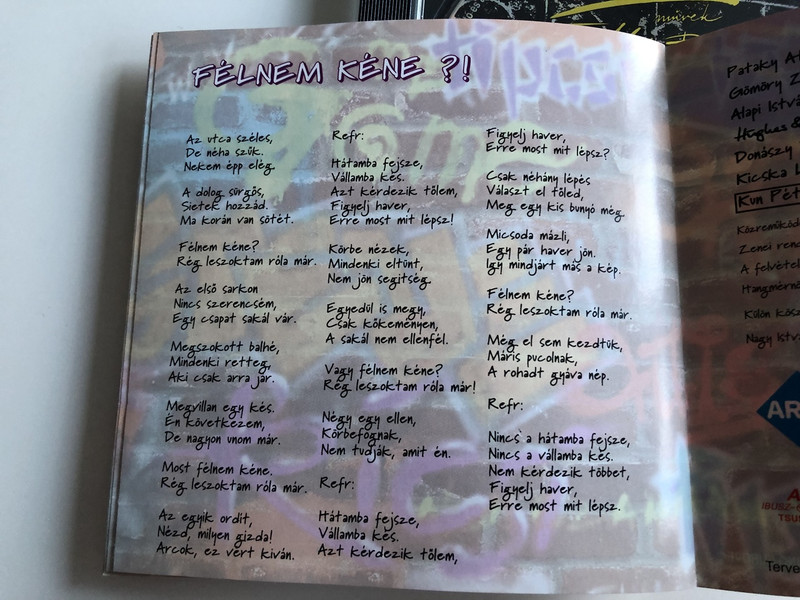 FÉLNEM KÉNE ?!
Az utca széles,
De néha szűk.
Nekem épp elég.
A dolog sürgős,
Sietek hozzád.
Ma korán van sötét.
Félnem kéne?
Rég leszoktam róla már.
Az első sarkon
Nincs szerencsém,
Egy csapat sakál vár.
Megszokott balhé,
Mindenki retteg,
Aki csak arra jár.
Megvillan egy kés.
Én következem,
De nagyon unom már.
Most félnem kéne.
Rég leszoktam róla már.
Az egyik ordít,
Nézd, milyen gizda!
Arcok, ez vért kíván.
Refr:
Hátamba fejsze,
Vállamba kés.
Azt kérdezik tőlem,
Figyelj haver,
Erre most mit lépsz!
Körbe nézek,
Mindenki eltűnt,
Nem jön segítség.
Egyedül is megy,
Csak kőkeményen,
A sakál nem ellenfél.
Vagy félnem kéne?
Rég leszoktam róla már!
Négy egy ellen,
Körbefognak,
Nem tudják, amit én.
Refr:
Hátamba fejsze,
Vállamba kés.
Azt kérdezik tőlem,
Figyelj haver,
Erre most mit lépsz?
Csak néhány lépés
Választ el tőled,
Meg egy kis bunyó még.
Micsoda mázli,
Egy pár haver jön.
Így mindjárt más a kép.
Félnem kéne?
Rég leszoktam róla már.
Még el sem kezdtük,
Máris pucolnak,
A rohadt gyáva nép.
Refr:
Nincs a hátamba fejsze,
Nincs a vállamba kés.
Nem kérdezik többet,
Figyelj haver,
Erre most mit lépsz.
művek
Pataky
Gömöry Z
Alapi Istvá
Hughes &
Donászy
Kicska L
Kun Pét
Közreműköd
Zenei rend
A felvétel
Hangmérnö
Külön kösz
Nagy Istvá
AR
IBUSZ-
TSUS
Terve